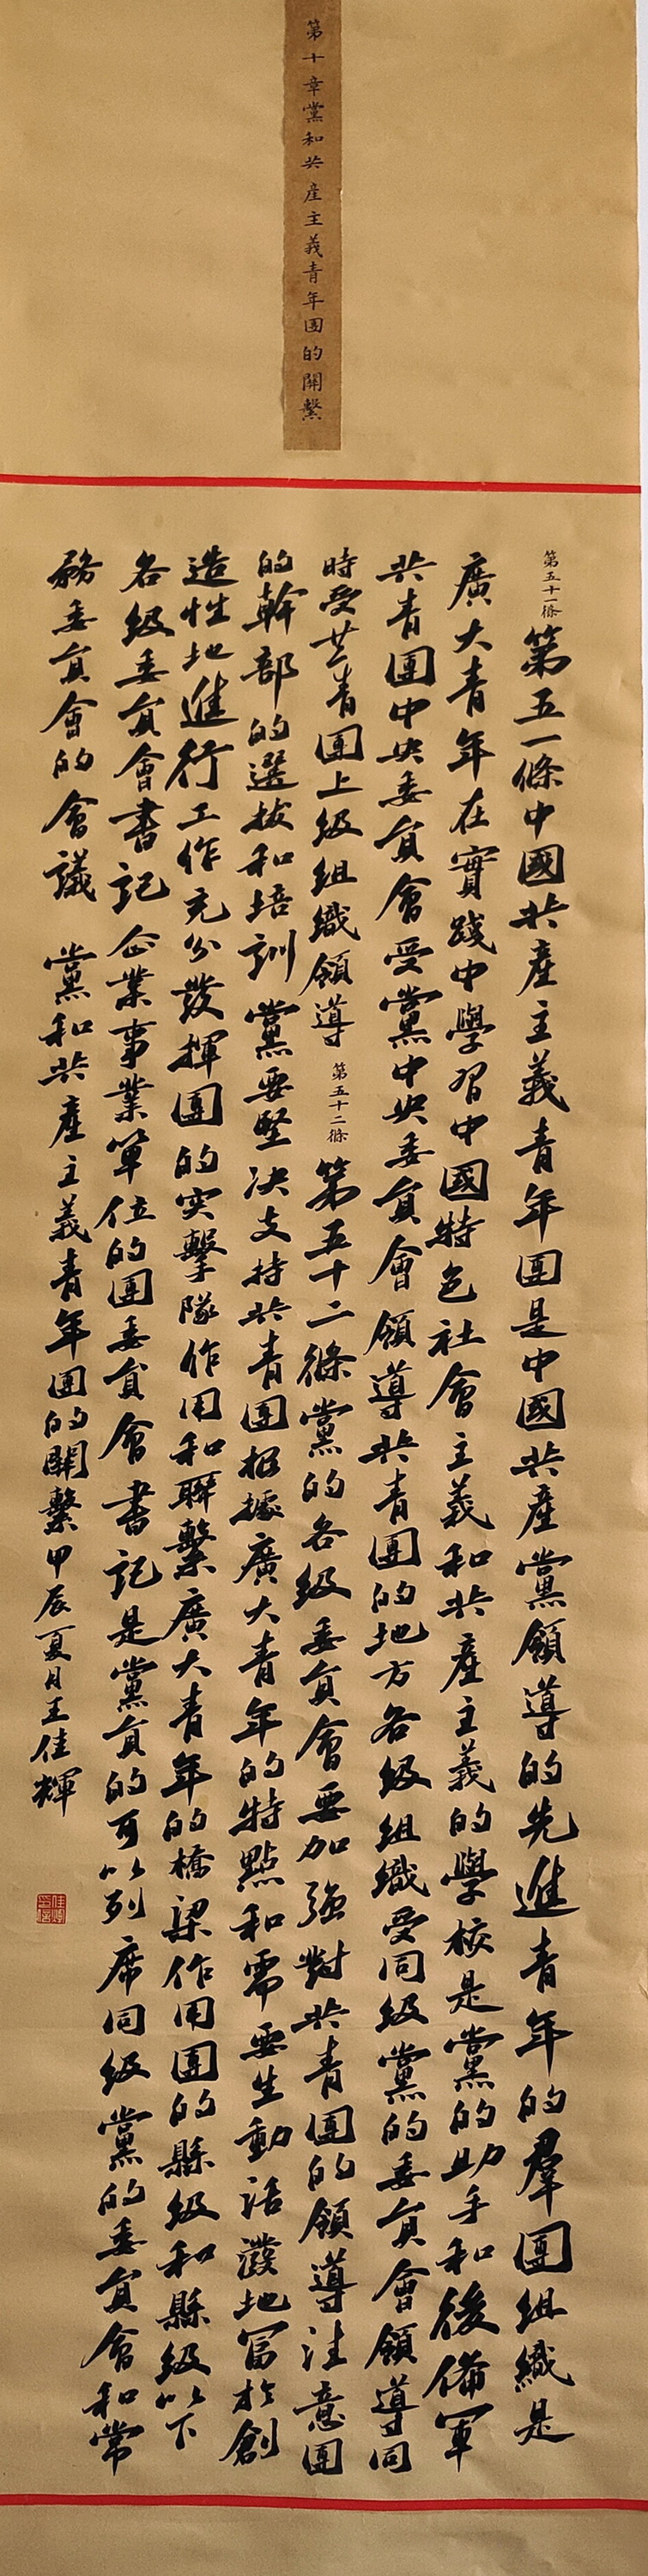 第十章黨和共產主義青年團的關繫
第五十一條
第五一條中國共產主義青年團是中國共產黨領導的先進青年的群團組織是
廣大青年在實踐中學習中國特色社會主義和共產主義的學校是黨的助手和後備軍
共青團中央委員會受黨中央委員會領導共青團的地方各級組織受同級黨的委員會領導同
時受共青團上級組織領導 第五十二條 第五十二條黨的各級委員會要加強對共青團的領導注意團
的幹部的選拔和培訓 黨要堅決支持共青團根據廣大青年的特點和需要生動活潑地富於創
造性地進行工作充分發揮團的突擊隊作用和聯繫廣大青年的橋梁作用團的縣級和縣級以下
各級委員會書記企業事業單位的團委員會書記是黨員的可以列席同級黨的委員會和常
務委員會的會議 黨和共產主義青年團的關繫甲辰夏月王佳輝